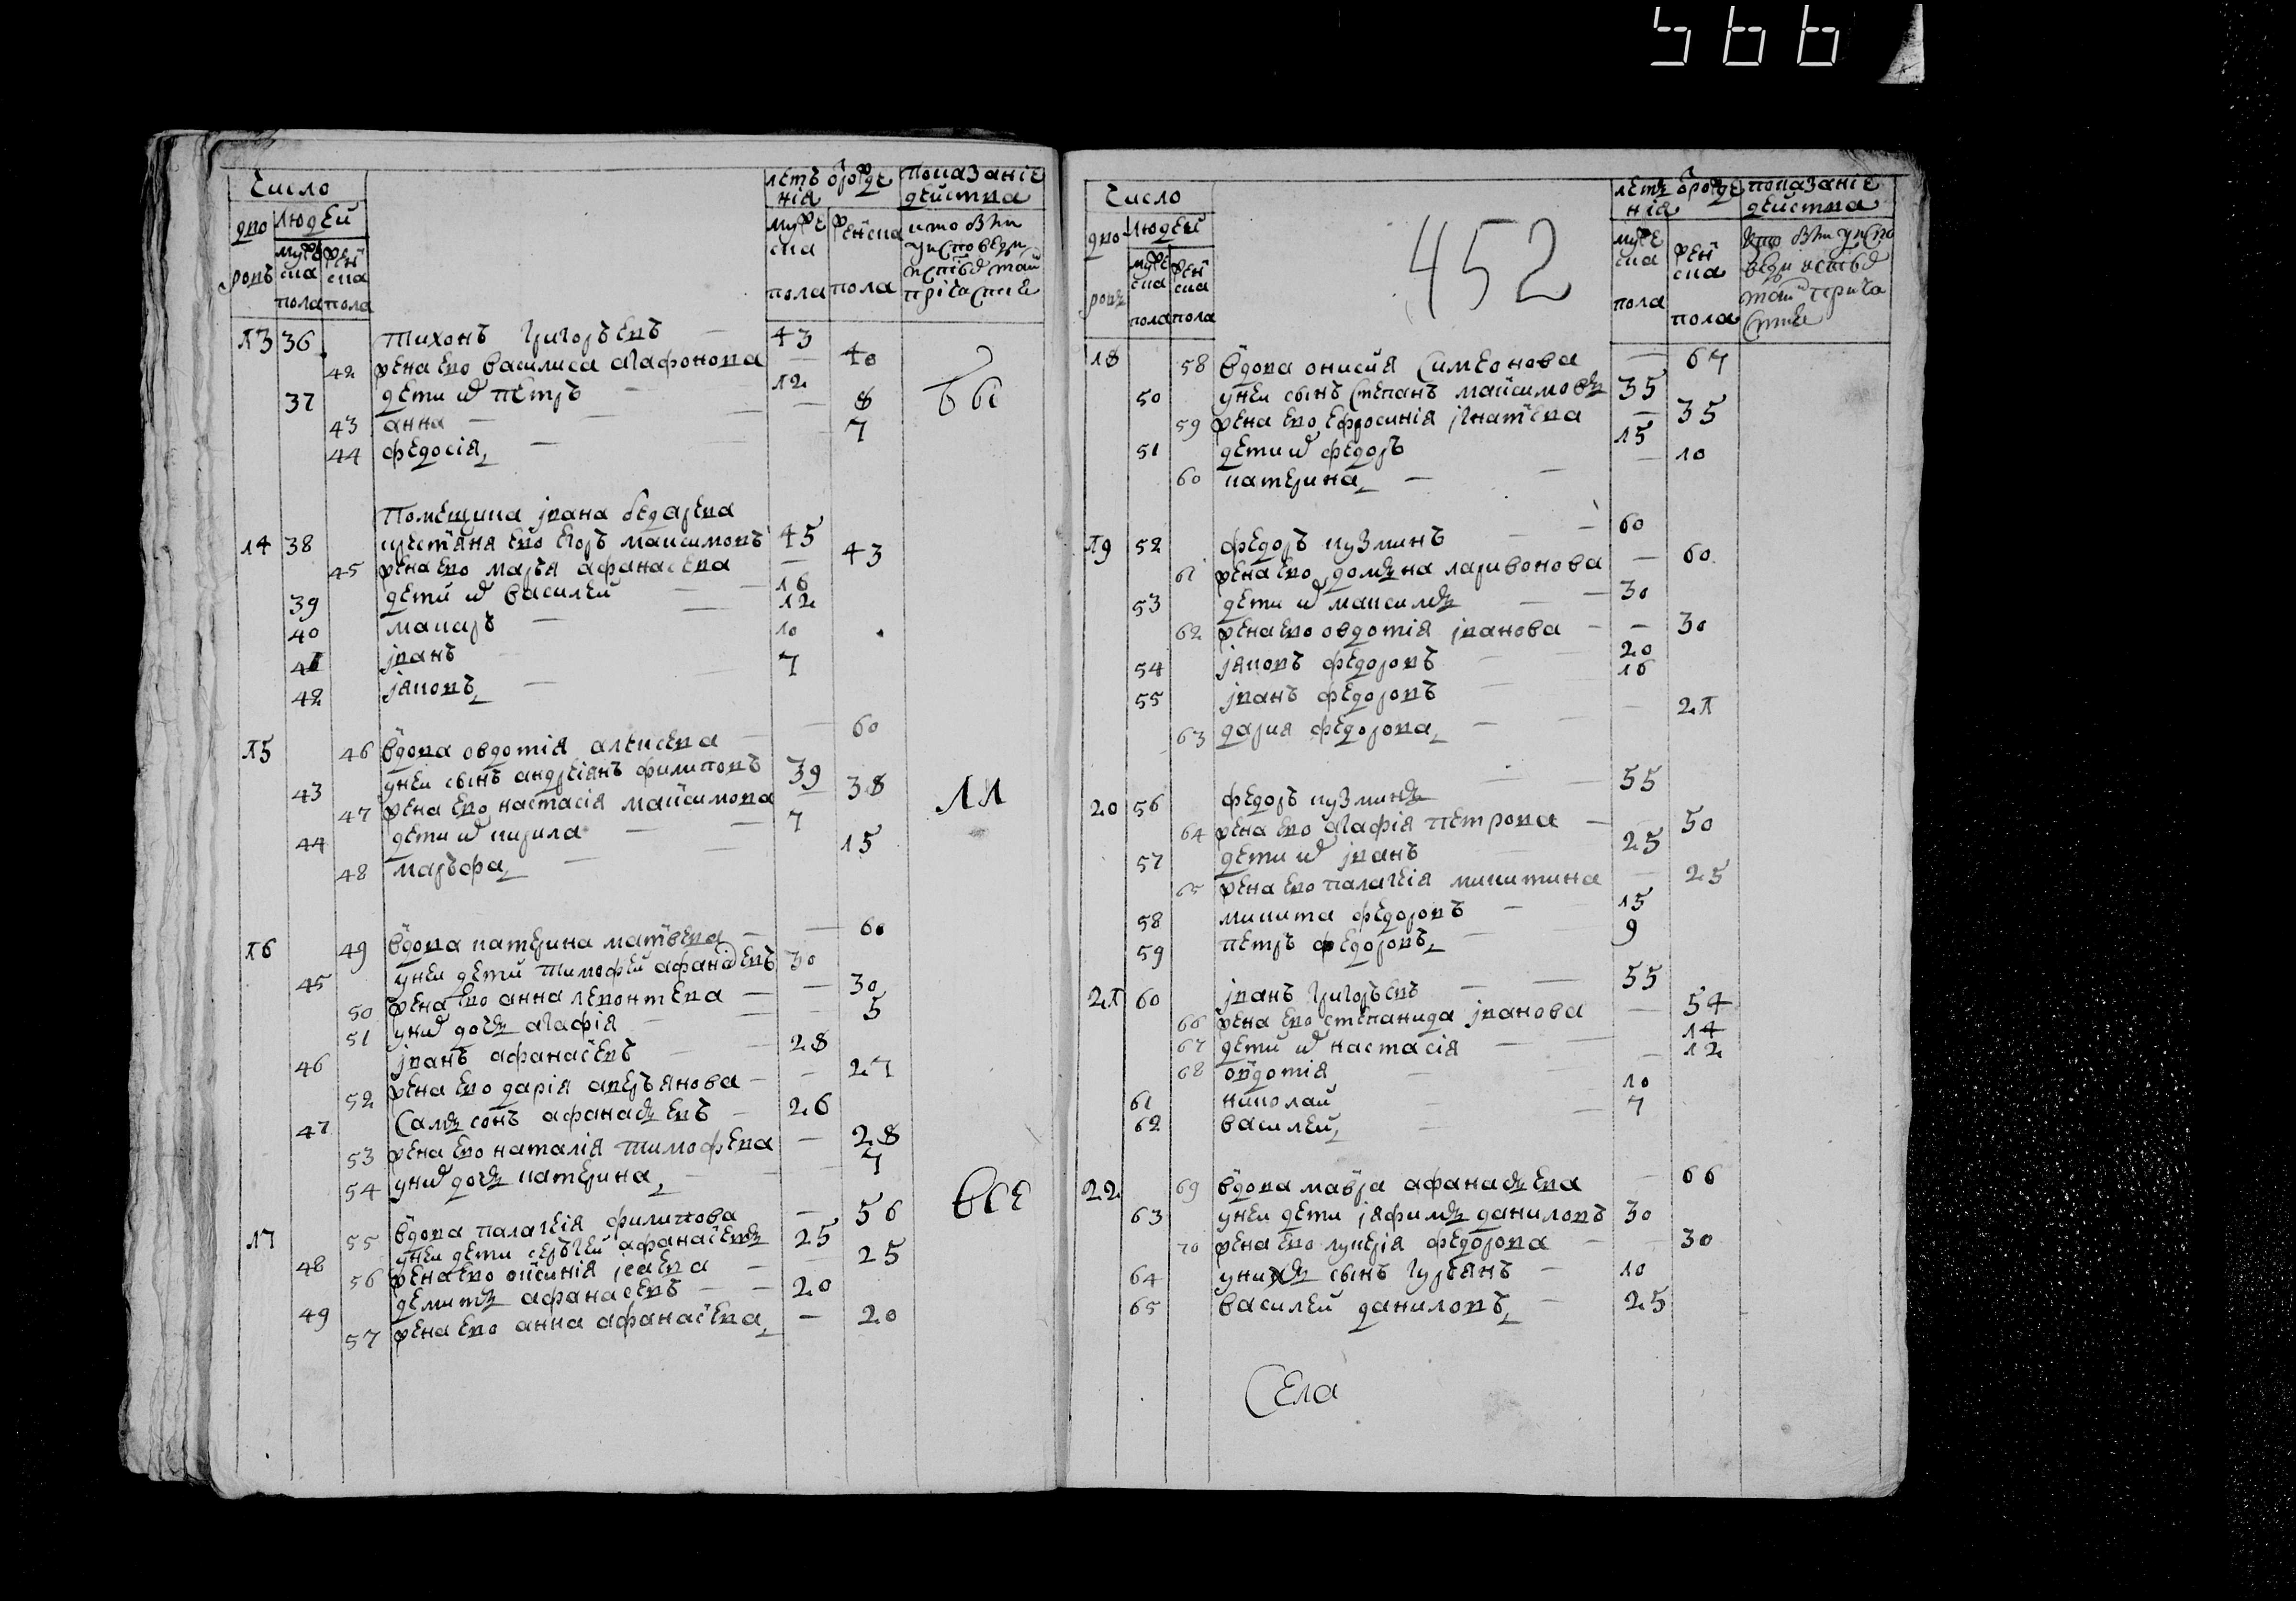 566
Число
дво
ровъ
людей
мужеска пола
женска пола
летъ от рожде
нія
мужеска пола
женска пола
показаніе
действа
кто бы
у исповеди
и святыхъ таи
причастие
13 36 Тихонъ Григорьевъ 43
42 жена ево Василиса Агафонова 40
37 дети их Петръ 12
43 Анна 8
44 Федосія 7
бы
Помещика Ивана Бедарева
14 38 крестьяня ево Егоръ Максимовъ 45
45 жена ево Марья Афанасева 43
39 дети их Василей 16
40 Макаръ 12
41 Иванъ 10
42 Яковъ 7
15 46 вдова Овдотія Алексева 60
43 у неи сынъ Андреянъ Филиповъ 39
47 жена ево Настасія Максимова 38
44 дети их Кирила 7
48 Марьфа 15
ли
16 49 вдова Катерина Матвева 60
45 у неи дети Тимофей Афанасевъ 30
50 жена ево Анна Левонтева 30
51 у них дочь Агафія 5
46 Иванъ Афанасевъ 28
52 жена ево Дарія Аверьянова 27
47 Самъсонъ Афанасьевъ 26
53 жена ево Наталія Тимофева 28
54 у них дочь Катерина 7
все
17 55 вдова Палагея Филипова 56
48 у неи дети Сергей Афанасевъ 25
56 жена ево Оксинія Исаева 25
49 Демитъ Афанасевъ 20
57 жена ево Анна Афанасева 20
Число
дво
ровъ
людей
мужеска пола
женска пола
452
летъ от рожде
нія
мужеска пола
женска пола
показаніе
действа
кто бы у испо
веди и святыхъ
таи прича
стие
18 58 вдова Онисия Симеонова 67
50 у неи сынъ Степанъ Максимовъ 35
59 жена ево Ефросинія Игнатева 35
51 дети их Федоръ 15
60 Катерина 10
19 52 Федоръ Кузминъ 60
61 жена ево Домна Ларивонова 60
53 дети их Максимъ 30
62 жена ево Овдотія Иванова 30
54 Яковъ Федоровъ 20
55 Иванъ Федоровъ 16
63 Дария Федорова 21
20 56 Федоръ Кузминъ 55
64 жена ево Агафія Петрова 50
57 дети их Иванъ 25
65 жена ево Палагея Микитина 25
58 Микита Федоровъ 15
59 Петръ Федоровъ 9
21 60 Иванъ Григорьевъ 55
66 жена ево Степанида Иванова 54
67 дети их Настасія 14
68 Овдотія 12
61 Николай 10
62 Василей 7
22 69 вдова Мавра Афанасьева 66
63 у неи дети Яфимъ Даниловъ 30
70 жена ево Лукерія Федорова 30
64 у нихъ сынъ Гурьянъ 10
65 Василей Даниловъ 25
Села